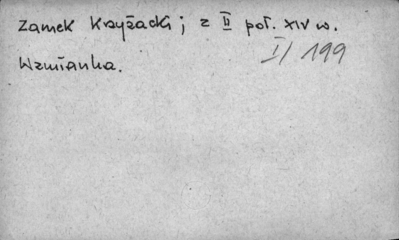 Zamek Krzyżacki; z II poł. XIV w.
I/199
Wzmianka.